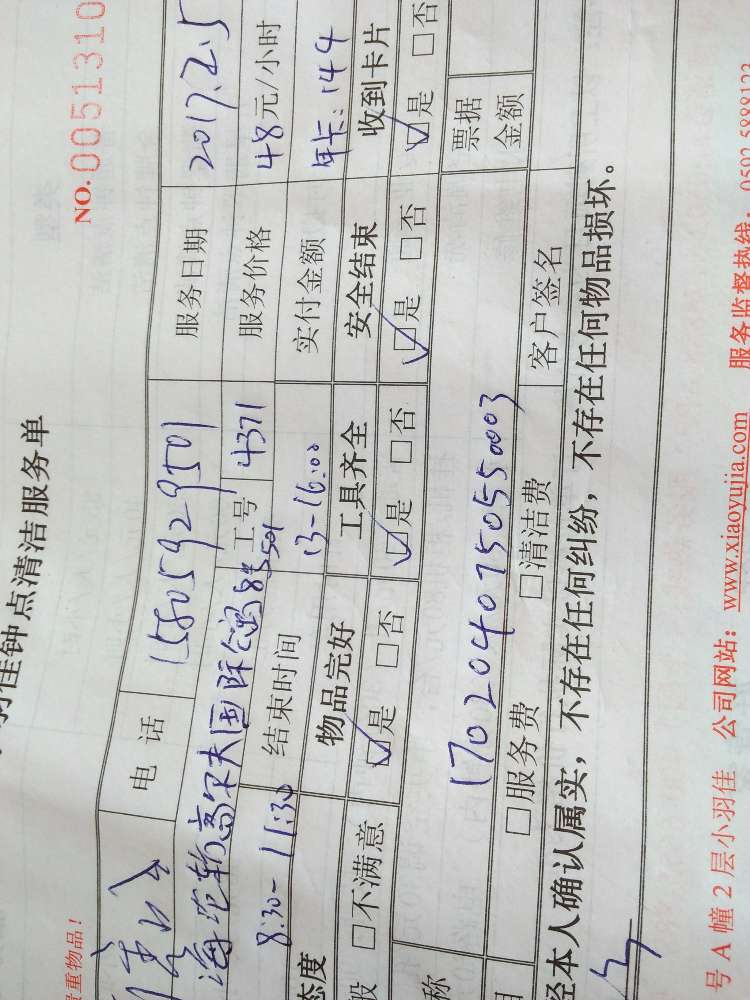 羽佳钟点清洁服务单
贵重物品!
NO. 0051310
电 话 15805929501 服务日期 2017.2.5
海沧 高尔夫国际公寓 工号 4371 服务价格 48元/小时
8:30-11:30 结束时间 13-16:00 实付金额 年卡:144
态度 物品完好 工具齐全 安全结束 收到卡片
般 □不满意 ☑是 □否 ☑是 □否 ☑是 □否 ☑是 □否
称 1702040750550003 票据金额
目 □服务费 □清洁费 客户签名
经本人确认属实,不存在任何纠纷,不存在任何物品损坏。
号 A 幢 2 层小羽佳 公司网站:www.xiaoyujia.com 服务监督热线 0592-5888123